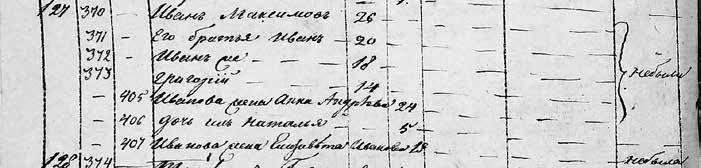 127 370 Иванъ Максимовъ 26
371 – Его братья Иванъ – 20
372 – Иванъ же – – – 18 –
373 – Григорій – 14
небыли
– 405 Иванова жена Анна Андрѣева 24
– 406 дочь ихъ Наталья – 5 –
– 407 Иванова жена Елизавѣта Иванова 18
128 374 небыли